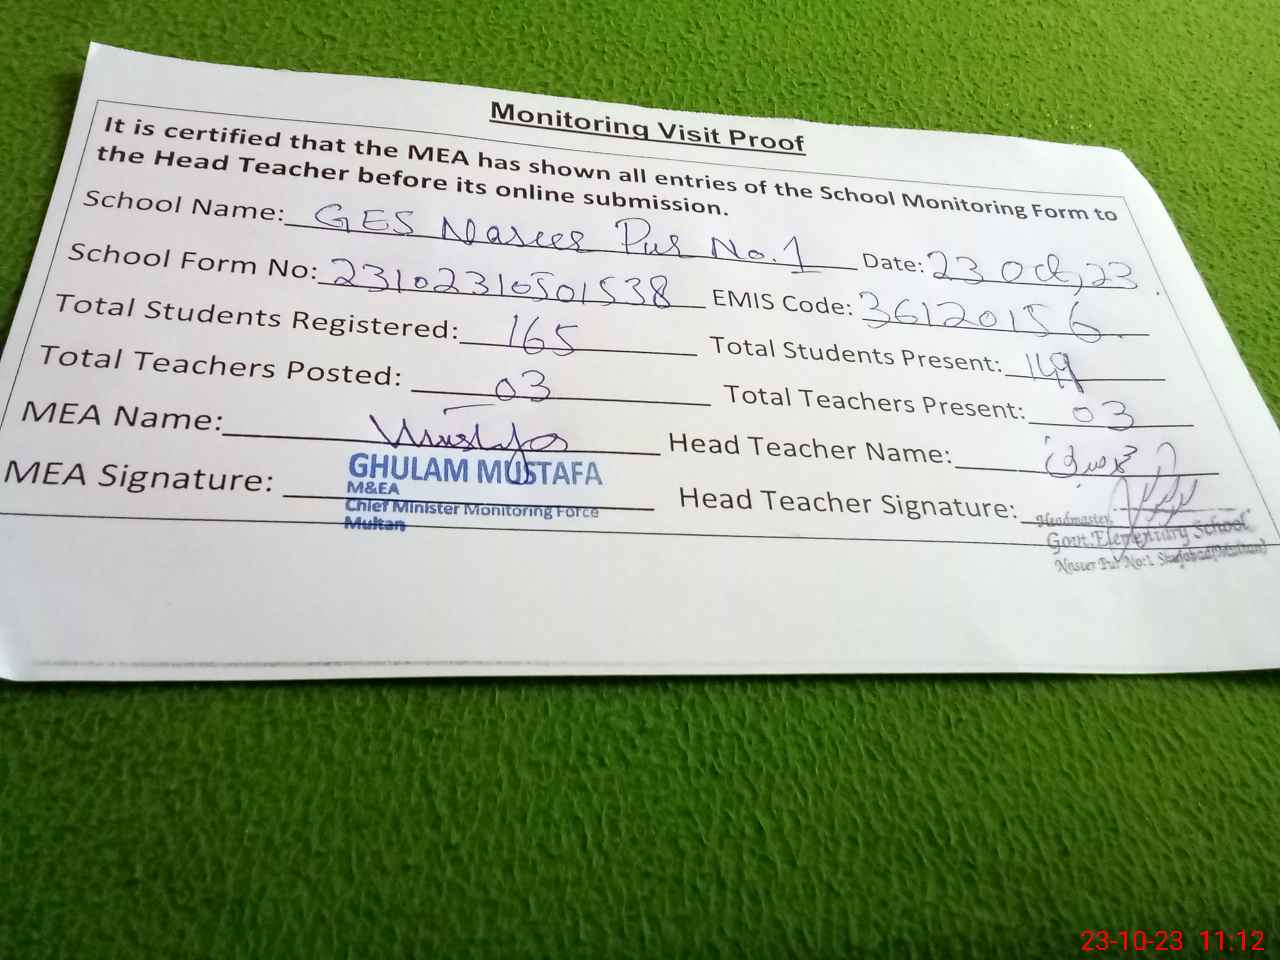 Monitoring Visit Proof
It is certified that the MEA has shown all entries of the School Monitoring Form to
the Head Teacher before its online submission.
School Name: GES Naseer Pur No.1 Date: 23 Oct, 23
School Form No: 23102310501538 EMIS Code: 36120156
Total Students Registered: 165 Total Students Present: 149
Total Teachers Posted: 03 Total Teachers Present: 03
MEA Name: Mustafa Head Teacher Name:
MEA Signature: Head Teacher Signature:
GHULAM MUSTAFA
M&EA
Chief Minister Monitoring Force
Multan
Headmaster
Govt. Elementary School
Naseer Pur No:1 Shujabad(Multan)
23-10-23 11:12